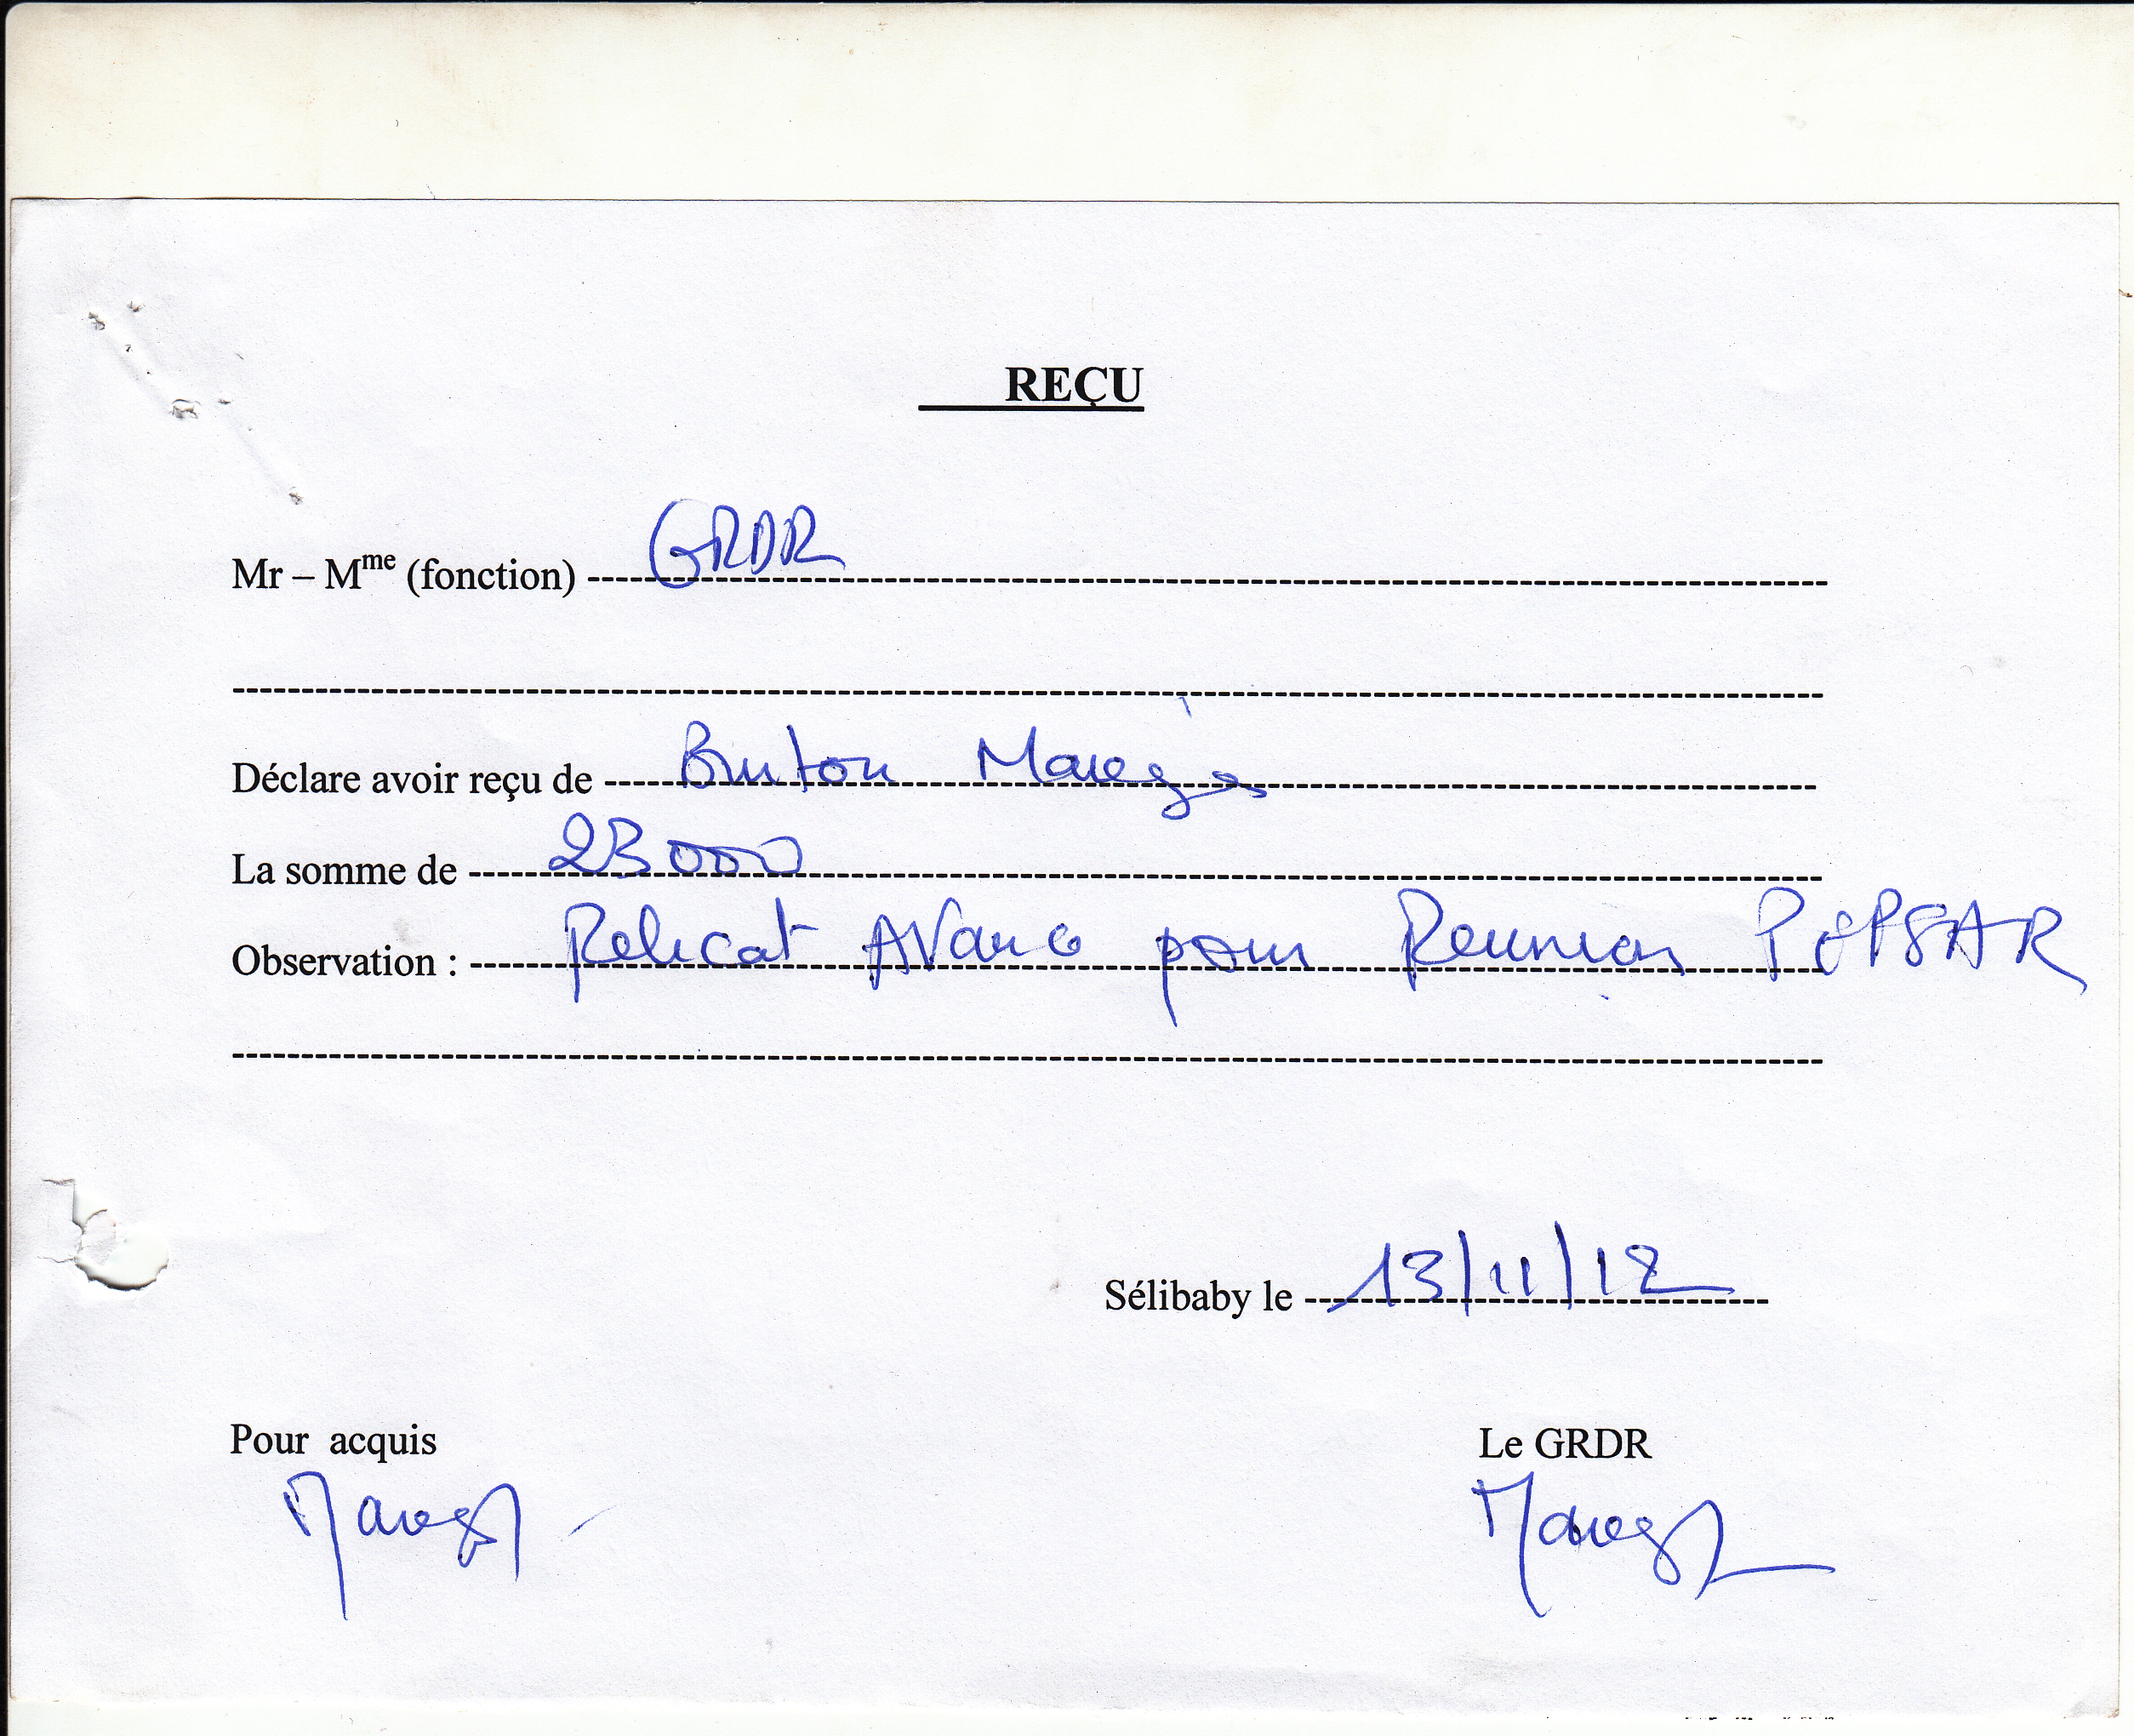 REÇU
Mr – Mme (fonction) GRDR
Déclare avoir reçu de
La somme de 23000
Observation : Relicat Avance pour Reunion
Sélibaby le 13/11/12
Pour acquis
Le GRDR